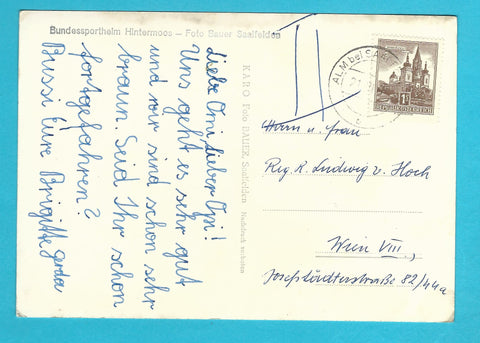 Bundessportheim Hintermoos – Foto Bauer Saalfelden
Liebe Omi lieber Opi!
Uns geht es sehr gut
und wir sind schon sehr
braun. Seid Ihr schon
fortgefahren?
Bussi Eure Brigitte Gerda
KARO Foto BAUER Saalfelden Nachdruck verboten
ALM bei SAAL
1S
REPUBLIK ÖSTERREICH
Herrn u. Frau
Reg. R. Ludwig v. Hoch
Wien VIII,
Josefstädterstraße 82/44a